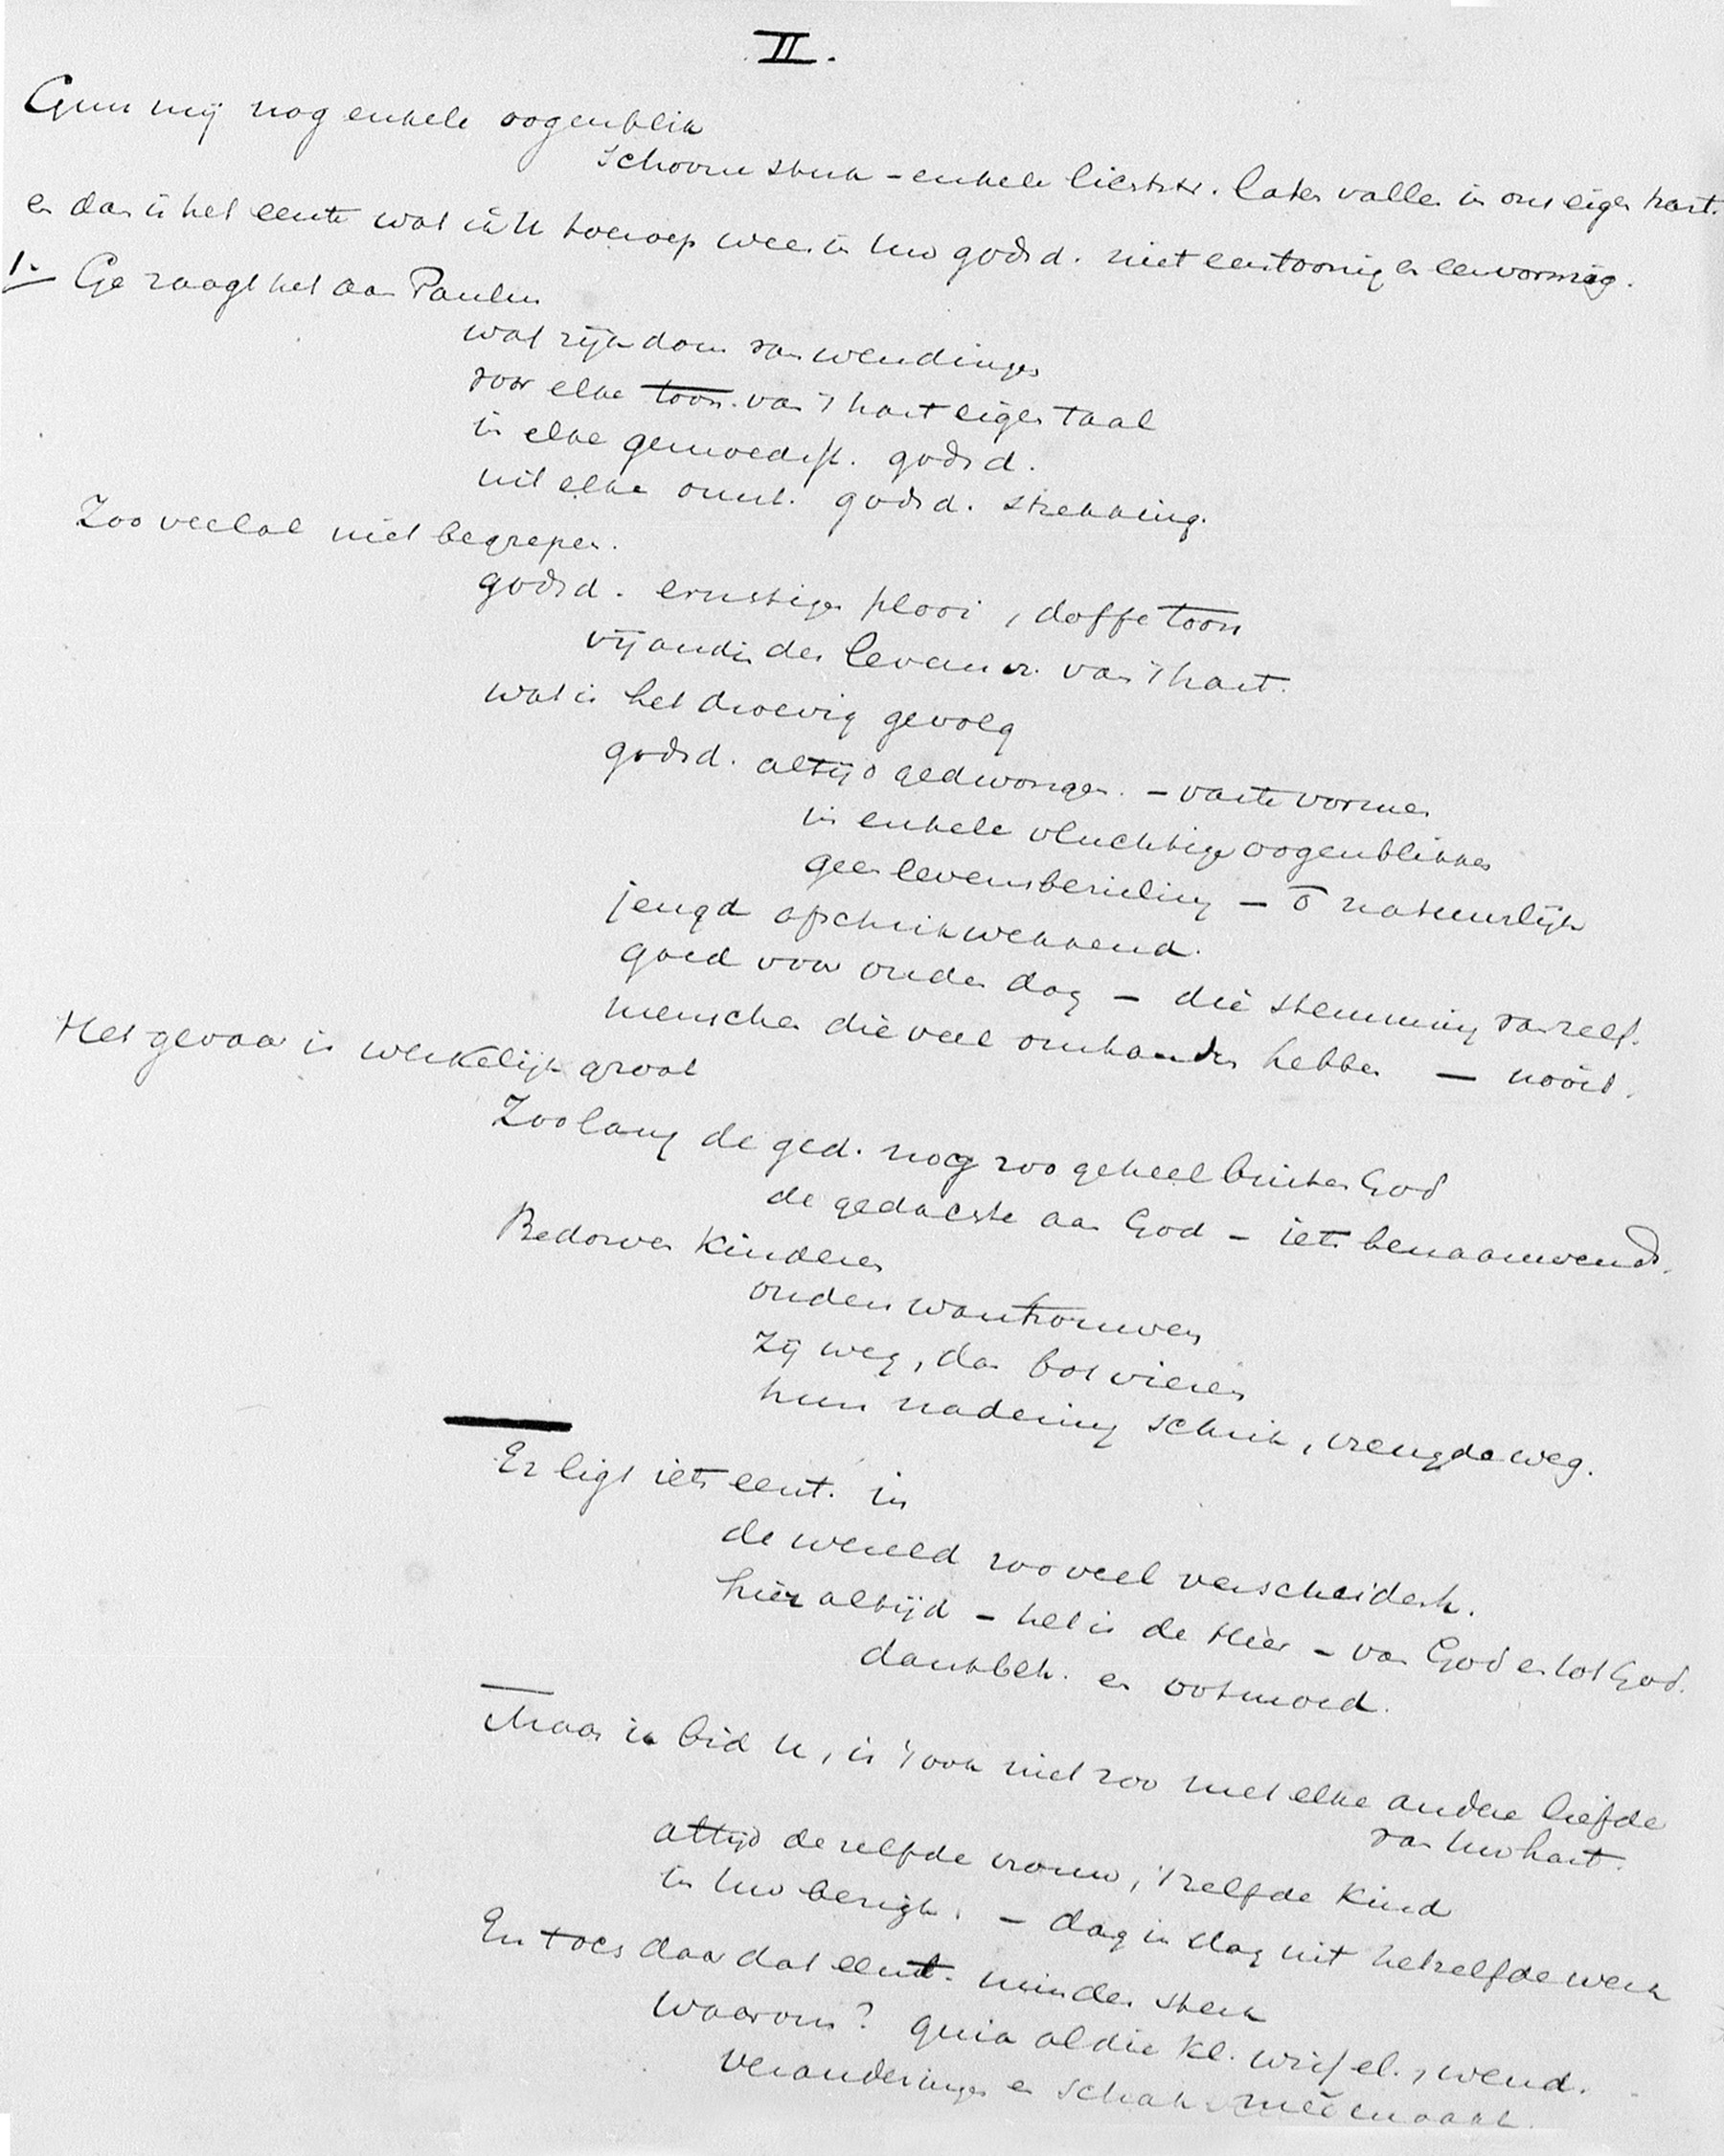 II.
Gun mij nog enkele oogenblik
Schoone stuk - enkele lichtstr. laten vallen in ons eigen hart.
en dan is het eerste wat ik U toeroep wees in Uw godsd. niet eentoonig en eenvormig.
1. Ge zaagt het aan Paulus
wat rijkdom van wendingen
voor elke toon van 't hart eigen taal
in elke gemoedsst. godsd.
uit elke omst. godsd. strekking.
Zoo veelal niet begrepen.
godsd. ernstige plooi, doffe toon
vijandin der levensvr. van 't hart.
wat is het droevig gevolg
godsd. altijd gedwongen. - vaste vormen
in enkele vluchtige oogenblikken
geen levensbezieling - ō natuurlijk
jeugd afschrikwekkend.
goed voor ouden dag - die stemming vanzelf.
menschen die veel omhanden hebben - nooit.
Het gevaar is werkelijk groot
Zoolang de ged. nog zoo geheel buiten God
de gedachte aan God - iets benaauwends.
Bedorven Kinderen
ouders wantrouwen
Zij weg, dan bot vieren
hun nadering schrik, vreugde weg.
Er ligt iets eent. in
de wereld zooveel verscheidenh.
hier altijd - het is de Heer - van God en tot God.
dankbh. en ootmoed.
Maar ik bid U, is 't ook niet zoo met elke andere liefde
van Uw hart.
altijd dezelfde vrouw, 't zelfde Kind
in Uw bezigh. - dag in dag uit hetzelfde werk
En toch daar dat eent. minder sterk
Waarom? quia al die kl. wissel., wend.
veranderingen en schak. meêmaakt.